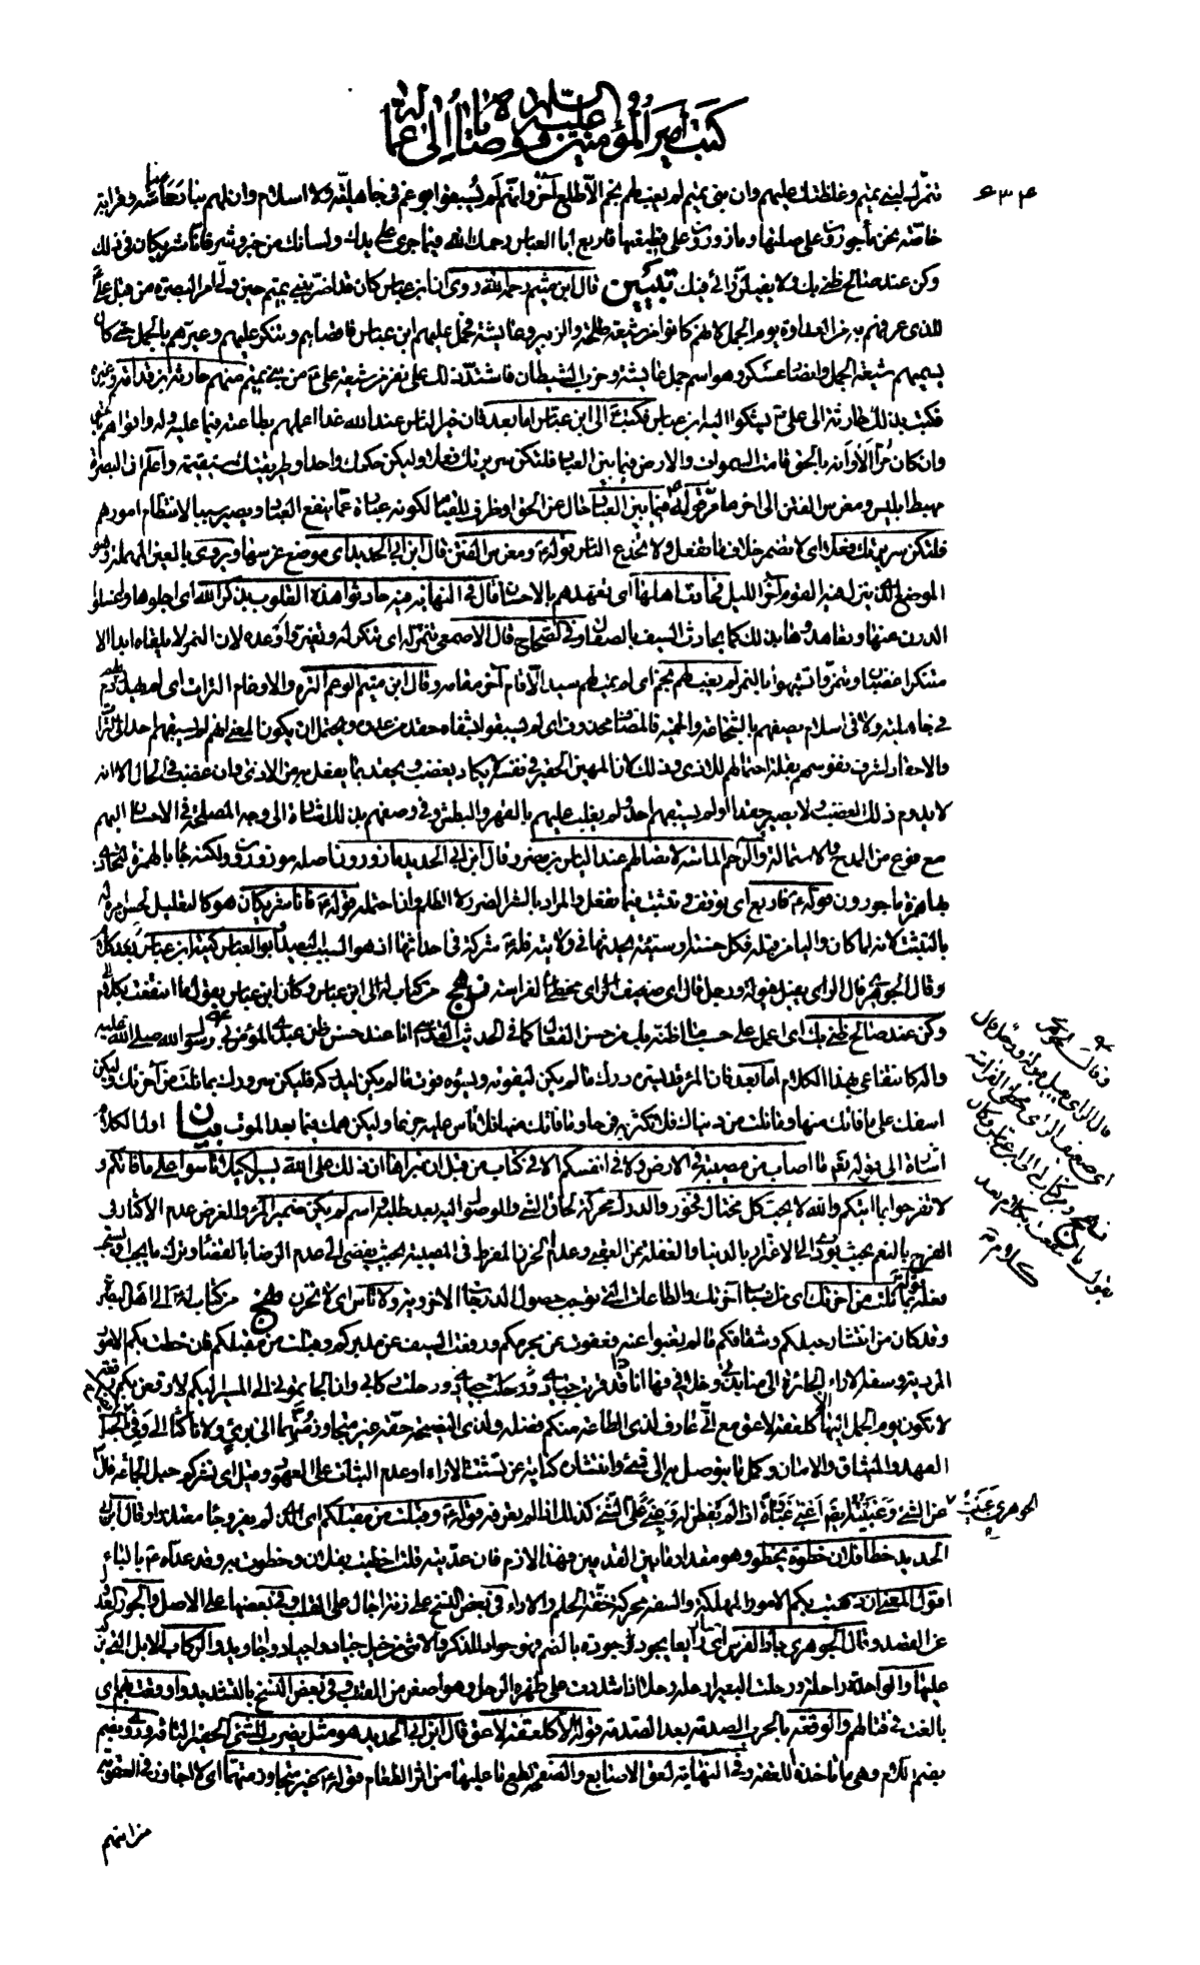 كتب أمير المؤمنين عليه السلام ووصاياه إلى عماله
۶۳۴
تنمرك لبني تميم وغلظتك عليهم وان بني تميم لم يغب لهم نجم الا طلع آخر وانهم لم يسبقوا بوغم في جاهلية ولا اسلام وان لهم بنا رحما ماسة وقرابة
خاصة نحن مأجورون على صلتها ومأزورون على قطيعتها فاربع ابا العباس رحمك الله فيما جرى على يدك ولسانك من خير وشر فانا شريكان في ذلك
وكن عند صالح ظني بك ولا يفيلن رأيي فيك تبيين قال ابن ميثم رحمه الله روى ان ابن عباس كان قد اضر ببني تميم حين ولي امر البصرة من قبل علي
للذي عرفهم به من العداوة يوم الجمل لانهم كانوا من شيعة طلحة والزبير وعايشة فحمل عليهم ابن عباس فاقصاهم وتنكر عليهم وعيرهم بالجمل حتى كان
يسميهم شيعة الجمل وانصار عسكر وهو اسم جمل عايشة وحزب الشيطان فاشتد ذلك على نفر من شيعة علي من بني تميم منهم حارثة بن قدامة وغيره
فكتب بذلك حارثة الى علي يشكو اليه ابن عباس فكتب الى ابن عباس اما بعد فان خير الناس عند الله غدا اعملهم بطاعته فيما عليه وله واقواهم بالحق
وان كان مرا الا وانه بالحق قامت السموات والارض فيما بين العباد فلتكن سريرتك فعلا وليكن حكمك واحدا وطريقتك مستقيمة واعلم ان البصرة
مهبط ابليس ومغرس الفتن الى اخر ما مر قوله فيما بين العباد حال عن الحق او ظرف للقيام لكونه عبارة عما ينفع العباد ويصير سببا لانتظام امورهم
فلتكن سريرتك فعلا اى لا تضمر خلاف ما تفعل ولا تخدع الناس قوله ومغرس الفتن قال ابن ابي الحديد اى موضع غرسها ويروى بالعين المهملة وهو
الموضع الذي ينزل فيه القوم آخر الليل فحادث اهلها اى تعهدهم بالاحسان قال في النهاية فيه حادثوا هذه القلوب بذكر الله اى اجلوها واغسلوا
الدرن عنها وتعاهدوها بذلك كما يحادث السيف بالصقال وفي الصحاح قال الاصمعي تنمر له اى تنكر له وتغير واوعده لان النمر لا يلقاه ابدا الا
متنكرا غضبان وتنمروا تشبهوا بالنمر لم يغب لهم نجم اى لم يمت لهم سيد الا قام آخر مقامه وقال ابن ميثم الوغم الترة والاوغام الترات اى لم يهدر لهم دم
في جاهلية ولا في اسلام يصفهم بالشجاعة والحمية فالمضاف محذوف اى لم يسبقوا بشفاء حقد من عدوه ويحتمل ان يكون المعنى انهم لم يسبقهم احد الى الترات
والاحقاد لشرف نفوسهم بقلة احتمالهم للاذى وذلك لان المهين الحقير في نفسه لا يكاد يغضب ويحقد بما يفعل به من الاذى وان غضب في الحال الا انه
لا يدوم ذلك الغضب ولا يصير حقدا او لم يسبقهم احد ولم يغلب عليهم بالقهر والبطش وفي وصفهم بذلك اشارة الى وجه المصلحة في الاحسان اليهم
مع نوع من المدح والاستمالة والرحم الماسة لاتصالهم عند الياس بن مضر وقال ابن ابي الحديد مأزورون اصله موزورون ولكنه جاء بالهمزة ليحاذي
بها همزة مأجورون قوله فاربع اى توقف وتثبت فيما تفعل والمراد بالشر الضرر لا الظلم وان احتمله قوله فانا شريكان هو كالتعليل لحسن امره له
بالتثبت لانه لما كان واليا من قبله فكل حسنة او سيئة يحدثها في ولايته فله شركة في احداثها اذ هو السبب البعيد وابو العباس كنية ابن عباس بعد كلامه
وقال الجوهري فال الراي يفيل فيولة ورجل فال اى ضعيف الراى مخطئ الفراسة نهج من كتاب له الى ابن عباس وكان ابن عباس يقول ما انتفعت بكلام
وكن عند صالح ظني بك اى اعمل على حسب ما اظنه بك من حسن الفعال كما في الحديث القدسي انا عند حسن ظن عبدي المؤمن بي رسول الله صلى الله عليه
واله كانتفاعي بهذا الكلام اما بعد فان المرء قد يسره درك ما لم يكن ليفوته ويسوءه فوت ما لم يكن ليدركه فليكن سرورك بما نلت من آخرتك وليكن
اسفك على ما فاتك منها وما نلت من دنياك فلا تكثر به فرحا وما فاتك منها فلا تأس عليه جزعا وليكن همك فيما بعد الموت بيان اول الكلام
اشارة الى قوله تعالى ما اصاب من مصيبة في الارض ولا في انفسكم الا في كتاب من قبل ان نبراها ان ذلك على الله يسير لكيلا تأسوا على ما فاتكم و
لا تفرحوا بما اتيكم والله لا يحب كل مختال فخور والدرك محركة لحاق الشيء والوصول اليه بعد طلبه واسم لم يكن ضمير المرء والغرض عدم الاكثار في
الفرح بالنعم بحيث يؤدي الى الاغترار بالدنيا والغفلة عن العقبى وعدم الحزن المفرط في المصيبة بحيث يفضي الى عدم الرضا بالقضاء وترك ما يجب او يستحب
فعله قوله بما نلت من آخرتك اى من اسباب آخرتك والطاعات التي توجب حصول الدرجات الاخروية ولا تأس اى لا تحزن نهج من كتاب له الى اهل البصرة
وقد كان من انتشار حبلكم وشقاقكم ما لم تغبوا عنه فعفوت عن مجرمكم ورفعت السيف عن مدبركم وقبلت من مقبلكم فان خطت بكم الامور
المردية وسفه الاراء الجائرة الى منابذتي وخلافي فها انا ذا قد قربت جيادي ورحلت ركابي ولئن الجأتموني الى المسير اليكم لاوقعن بكم وقعة
لا يكون يوم الجمل اليها الا كلعقة لاعق مع اني عارف لذي الطاعة منكم فضله ولذي النصيحة حقه غير متجاوز متهما الى بري ولا ناكثا الى وفي الحبل
العهد والميثاق والامان وكل ما يتوصل به الى شيء وانتشاره كناية عن تشتت الاراء او عدم الثبات على العهود وقيل اى تفرقكم حبل الجماعة قال
الجوهري غبيت عن الشيء وغبيته ايضا اغبى غباوة اذا لم تفطن له وغبي علي الشيء كذلك اذا لم تعرفه قوله وقبلت من مقبلكم اى الذي لم يفر وجاء معتذرا وقال ابن ابي
الحديد خطا فلان خطوة يخطو وهو مقدار ما بين القدمين فهذا لازم فان عديته قلت اخطيت بفلان وخطوت به وقد عداه بالباء
اقول المعنى ان ذهبت بكم الامور المهلكة والسفه محركة خفة الحلم والاراء في بعض النسخ على زنة افعال على القلب وفي بعضها على الاصل والجور العدول
عن القصد وقال الجوهري جاد الفرس اى رايعا يجود جودة بالضم فهو جواد للذكر والانثى من خيل جياد واجياد واجاويد والركاب الابل التي يسار
عليها والواحدة راحلة ورحلت البعير ارحله رحلا اذا شددت على ظهره الرحل وهو اصغر من القتب وفي بعض النسخ بالتشديد واوقعت بهم اى
بالغت في قتالهم والوقعة بالحرب الصدمة بعد الصدمة قوله الا كلعقة لاعق قال ابن ابي الحديد هو مثل يضرب للشيء الحقير التافه ويروى بضم
بضم اللام وهي ما تاخذه الملعقة وفي النهاية لعق الاصابع والصحفة لطع ما عليها من اثر الطعام قوله غير متجاوز متهما اى لا اجاوز في العقوبة
من المتهم
وقال الجوهري
فال الراى يفيل فيولة ورجل فال
اى ضعيف الراى مخطئ الفراسة
نهج ومن كتاب له الى ابن عباس وكان
يقول ما انتفعت بكلام بعد
كلام